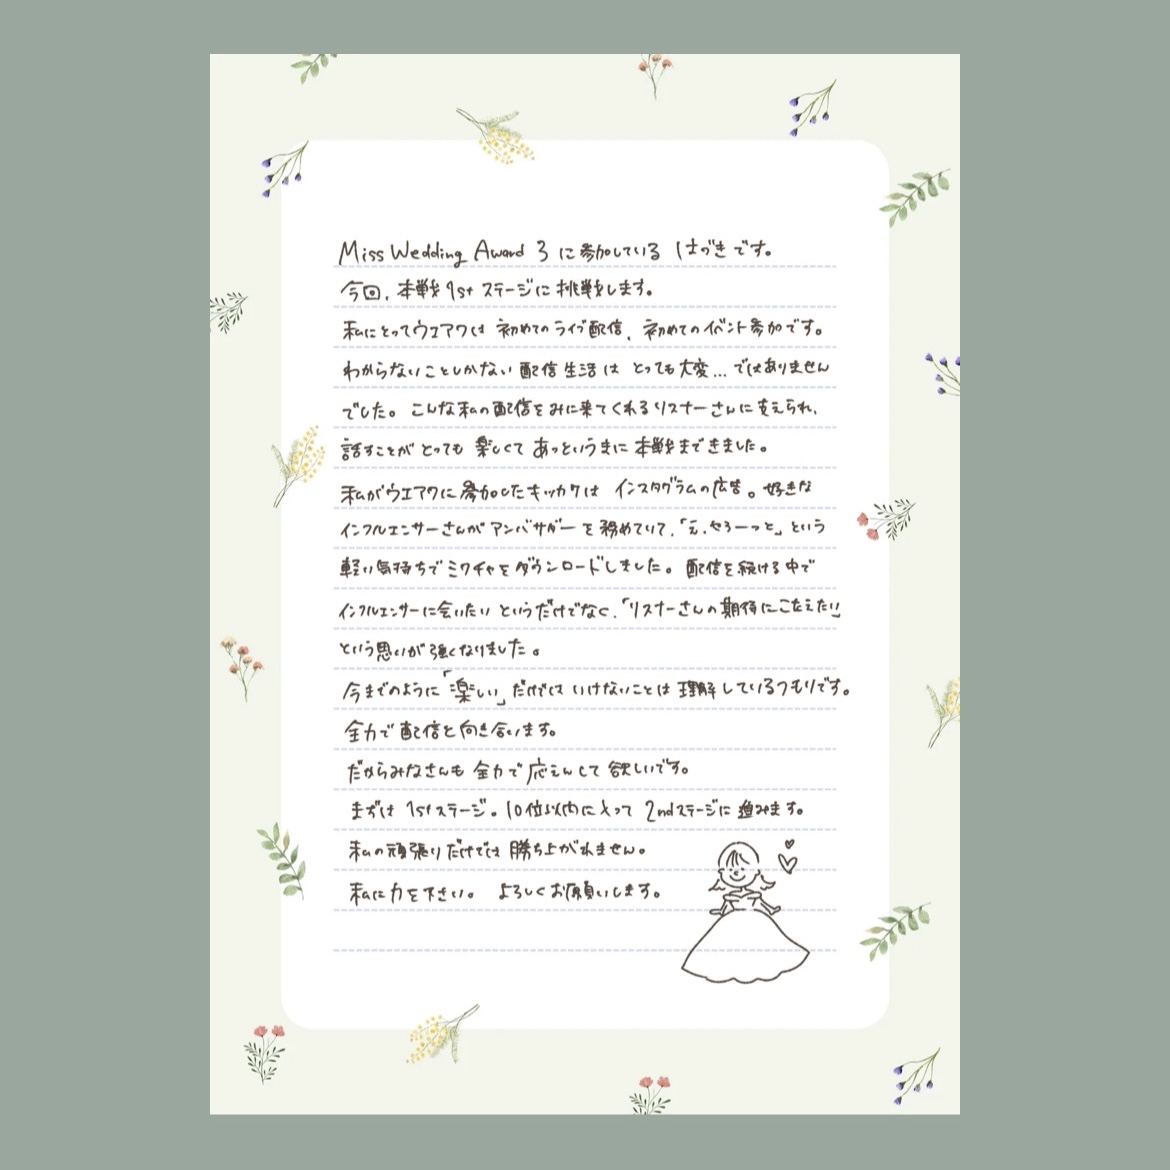 Miss Wedding Award 3 に参加している はづきです。
今回、本戦 1st ステージに挑戦します。
私にとってウエアワは 初めてのライブ配信、初めてのイベント参加です。
わからないことしかない 配信生活は とっても大変...ではありません
でした。こんな私の配信をみに来てくれるリスナーさんに支えられ、
話すことが とっても 楽しくて あっというまに 本戦まできました。
私がウエアワに参加したキッカケは インスタグラムの広告。好きな
インフルエンサーさんが アンバサダーを務めていて、「え、やろーっと」という
軽い気持ちで ミクチャをダウンロードしました。配信を続ける中で
インフルエンサーに会いたい というだけでなく、「リスナーさんの期待にこたえたい」
という思いが強くなりました。
今までのように「楽しい」だけでは いけないことは 理解しているつもりです。
全力で配信と向き合います。
だからみなさんも 全力で 応えんして 欲しいです。
まずは 1stステージ。10位以内に入って 2ndステージに進みます。
私の頑張りだけでは 勝ち上がれません。
私に力を下さい。 よろしくお願いします。